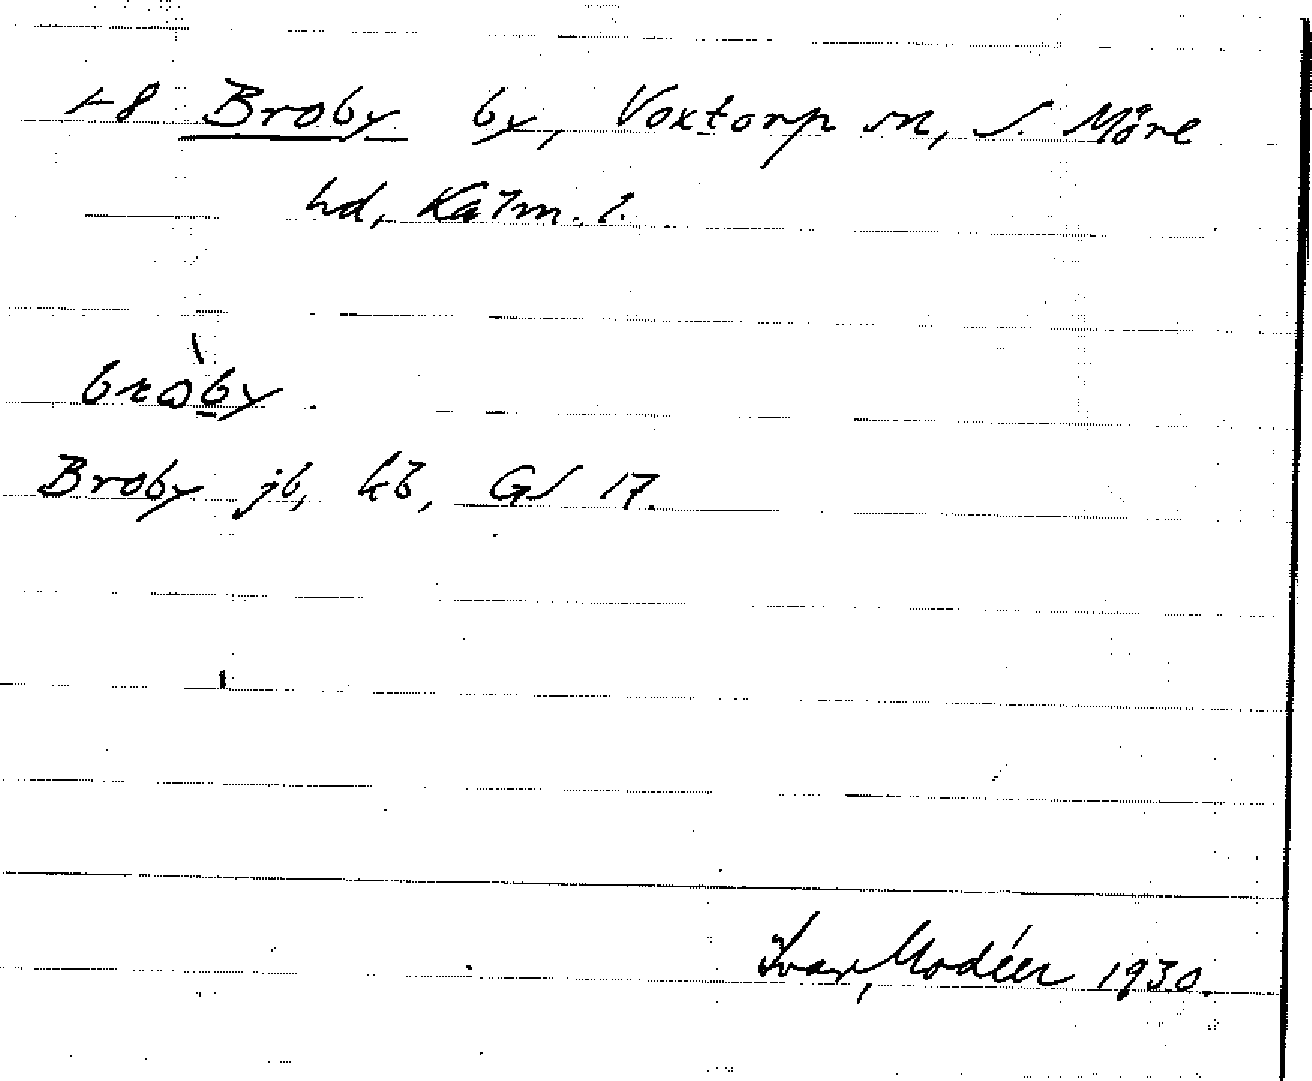 1-8 Broby by, Voxtorp sn, S. Möre
hd, Kalm. l.
Broby jb, kb, GS 17.
Ivar Modéer 1930.